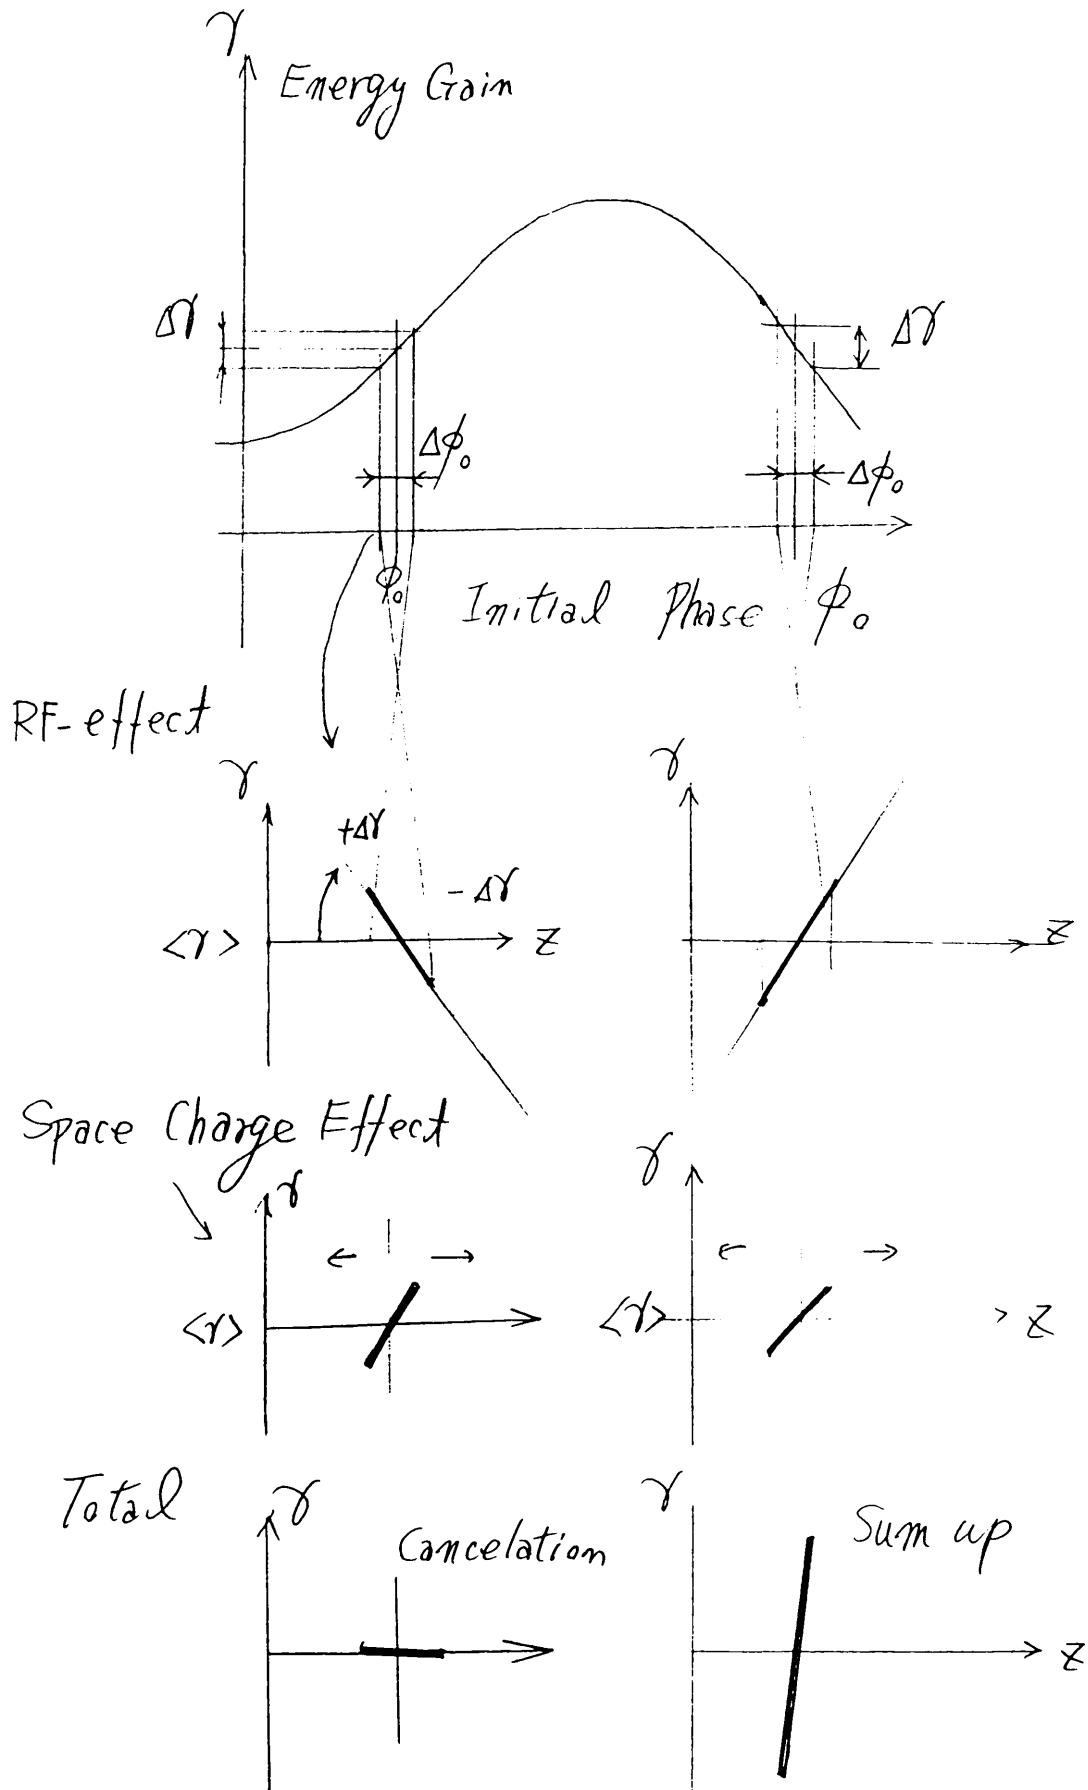 γ
Energy Gain
Δγ
Δγ
Δϕ₀
Δϕ₀
ϕ₀
Initial Phase ϕ₀
RF-effect
γ
γ
+Δγ
-Δγ
<γ>
Z
Z
Space Charge Effect
γ
γ
<γ>
<γ>
Z
Total
γ
γ
Cancelation
Sum up
Z